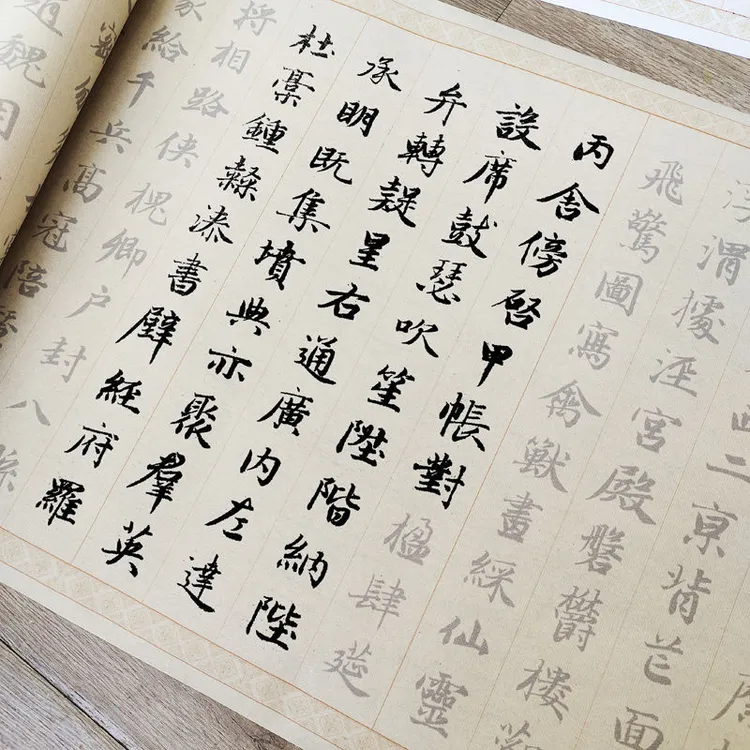 二亰背芒面
浮渭據涇宮殿磐鬱樓觀
飛驚圖寫禽獸畫綵仙靈
丙舍傍啓甲帳對楹肆筵
設席鼓瑟吹笙陞階納陛
弁轉疑星右通廣內左達
承眀既集墳典亦聚羣英
杜稾鍾隸漆書壁經府羅
將相路俠槐卿戶封八縣
家給千兵高冠陪
趙魏困